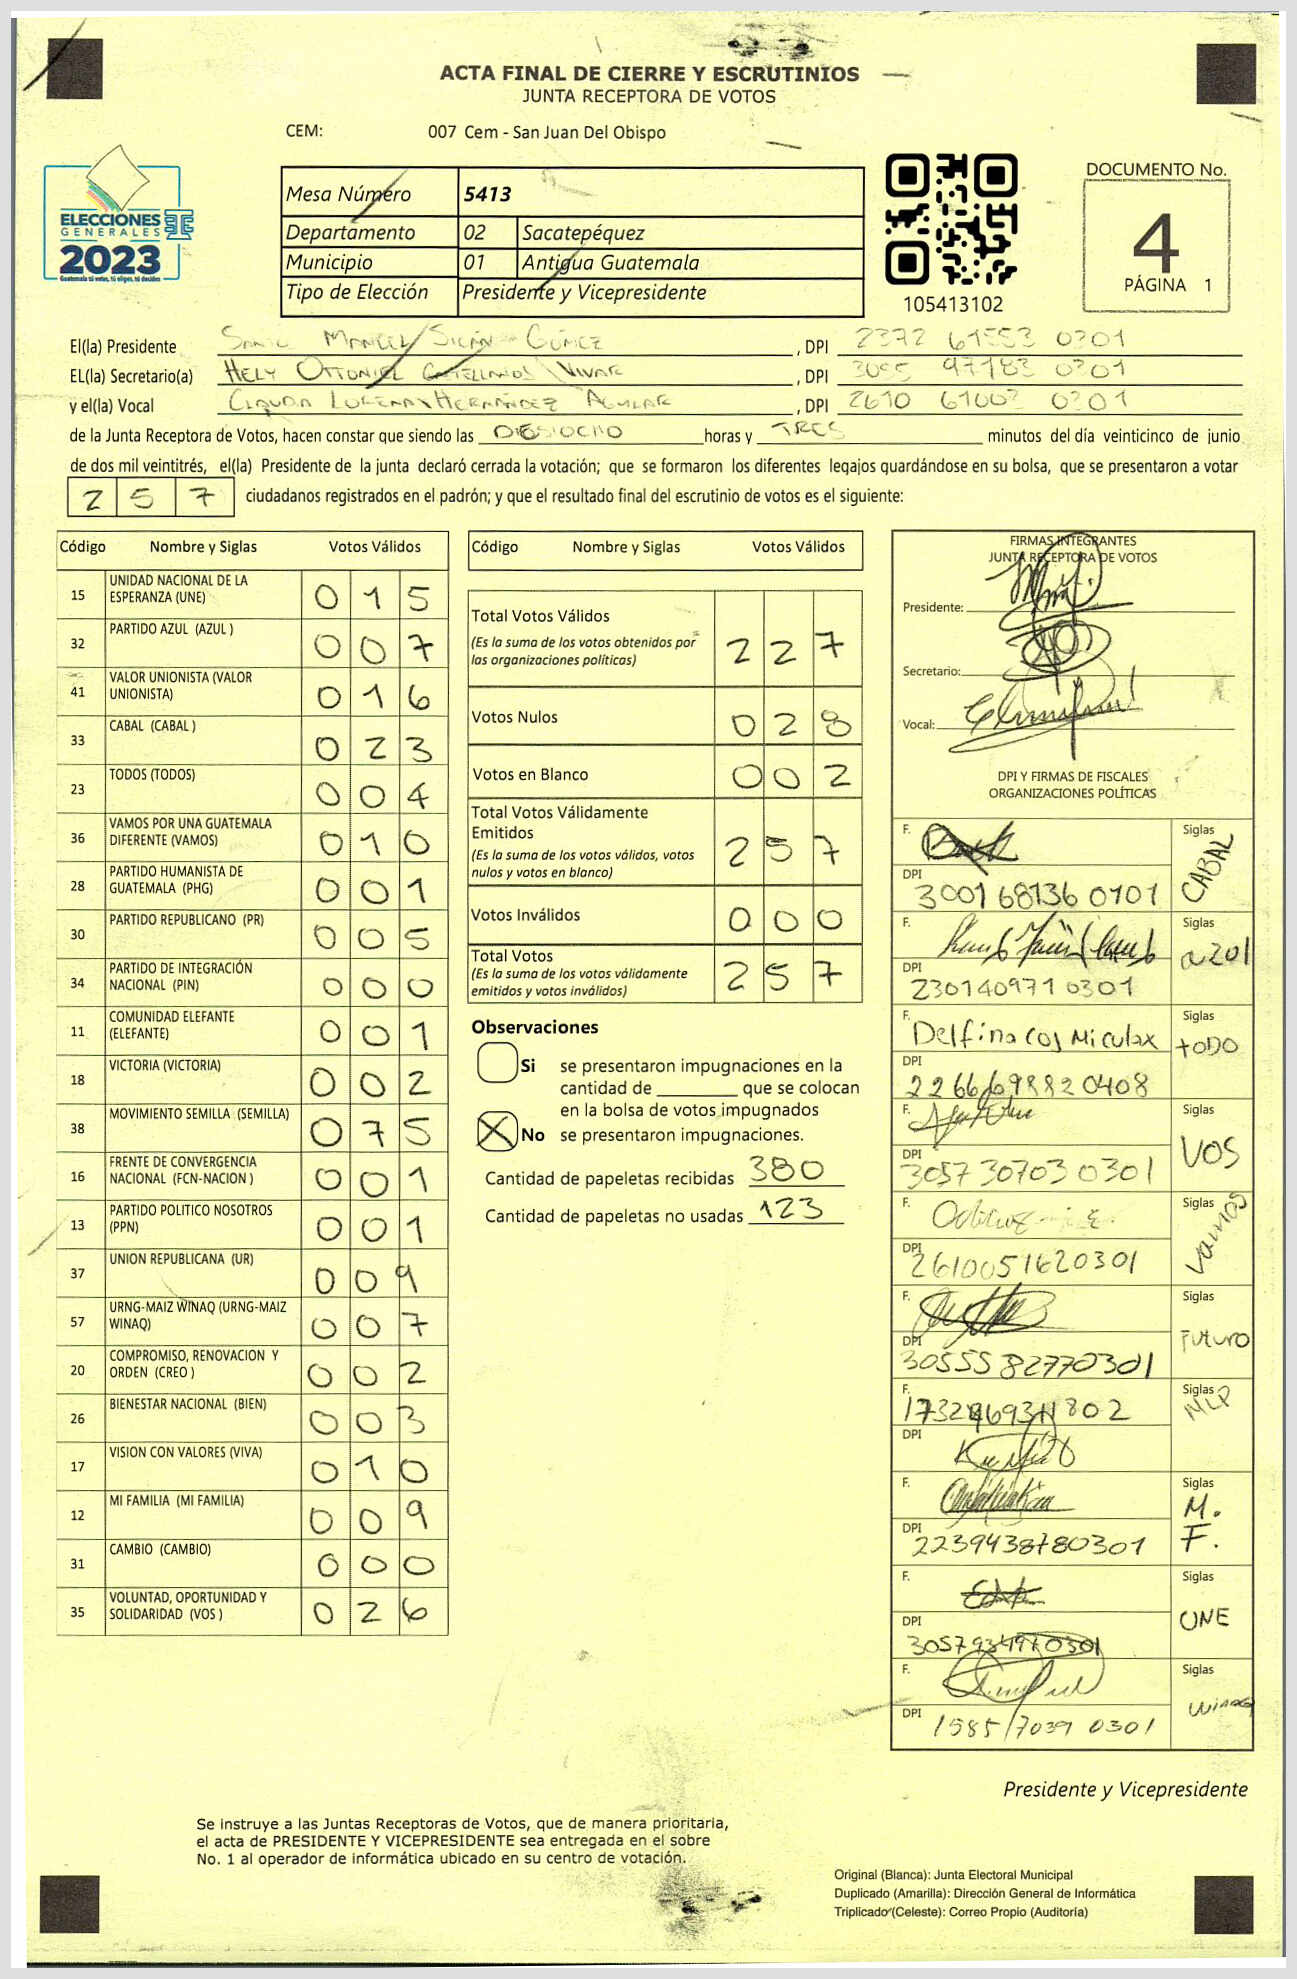 ACTA FINAL DE CIERRE Y ESCRUTINIOS
JUNTA RECEPTORA DE VOTOS
CEM: 007 Cem - San Juan Del Obispo
ELECCIONES
GENERALES
2023
Guatemala tú votas, tú eliges, tú decides
Mesa Número 5413
Departamento 02 Sacatepéquez
Municipio 01 Antigua Guatemala
Tipo de Elección Presidente y Vicepresidente
105413102
DOCUMENTO No.
4
PÁGINA 1
El(la) Presidente MANUEL SICÁN GÓMEZ, DPI 2372 61553 0301
EL(la) Secretario(a) HELY OTTONIEL CASTELLANOS VIVAR, DPI 3095 97183 0301
y el(la) Vocal CLAUDIA LORENA HERNÁNDEZ AGUILAR, DPI 2610 61003 0301
de la Junta Receptora de Votos, hacen constar que siendo las DIESIOCHO horas y TRES minutos del día veinticinco de junio
de dos mil veintitrés, el(la) Presidente de la junta declaró cerrada la votación; que se formaron los diferentes legajos guardándose en su bolsa, que se presentaron a votar
257 ciudadanos registrados en el padrón; y que el resultado final del escrutinio de votos es el siguiente:
Código Nombre y Siglas Votos Válidos
15 UNIDAD NACIONAL DE LA ESPERANZA (UNE) 015
32 PARTIDO AZUL (AZUL ) 007
41 VALOR UNIONISTA (VALOR UNIONISTA) 016
33 CABAL (CABAL ) 023
23 TODOS (TODOS) 004
36 VAMOS POR UNA GUATEMALA DIFERENTE (VAMOS) 010
28 PARTIDO HUMANISTA DE GUATEMALA (PHG) 001
30 PARTIDO REPUBLICANO (PR) 005
34 PARTIDO DE INTEGRACIÓN NACIONAL (PIN) 000
11 COMUNIDAD ELEFANTE (ELEFANTE) 001
18 VICTORIA (VICTORIA) 002
38 MOVIMIENTO SEMILLA (SEMILLA) 075
16 FRENTE DE CONVERGENCIA NACIONAL (FCN-NACION ) 001
13 PARTIDO POLITICO NOSOTROS (PPN) 001
37 UNION REPUBLICANA (UR) 009
57 URNG-MAIZ WINAQ (URNG-MAIZ WINAQ) 007
20 COMPROMISO, RENOVACION Y ORDEN (CREO ) 002
26 BIENESTAR NACIONAL (BIEN) 003
17 VISION CON VALORES (VIVA) 010
12 MI FAMILIA (MI FAMILIA) 009
31 CAMBIO (CAMBIO) 000
35 VOLUNTAD, OPORTUNIDAD Y SOLIDARIDAD (VOS ) 026
Código Nombre y Siglas Votos Válidos
Total Votos Válidos 227
(Es la suma de los votos obtenidos por las organizaciones políticas)
Votos Nulos 028
Votos en Blanco 002
Total Votos Válidamente Emitidos 257
(Es la suma de los votos válidos, votos nulos y votos en blanco)
Votos Inválidos 000
Total Votos 257
(Es la suma de los votos válidamente emitidos y votos inválidos)
Observaciones
Si se presentaron impugnaciones en la
cantidad de ________ que se colocan
en la bolsa de votos impugnados
X No se presentaron impugnaciones.
Cantidad de papeletas recibidas 380
Cantidad de papeletas no usadas 123
FIRMAS INTEGRANTES
JUNTA RECEPTORA DE VOTOS
Presidente:
Secretario:
Vocal:
DPI Y FIRMAS DE FISCALES
ORGANIZACIONES POLÍTICAS
F. Siglas CABAL
DPI 3001 68136 0101
F. Siglas azul
DPI 230140971 0301
F. Delfina Coj Miculax Siglas TODO
DPI 2266698820408
F. Siglas VOS
DPI 3057 30703 0301
F. Siglas Vamos
DPI 2610051620301
F. Siglas Futuro
DPI 3055582770301
F. Siglas MLP
DPI
F. Siglas M. F.
DPI 2239438780301
F. Siglas UNE
DPI 3057934970301
F. Siglas Winaq
DPI 1585 17039 0301
Presidente y Vicepresidente
Se instruye a las Juntas Receptoras de Votos, que de manera prioritaria,
el acta de PRESIDENTE Y VICEPRESIDENTE sea entregada en el sobre
No. 1 al operador de informática ubicado en su centro de votación.
Original (Blanca): Junta Electoral Municipal
Duplicado (Amarilla): Dirección General de Informática
Triplicado (Celeste): Correo Propio (Auditoría)